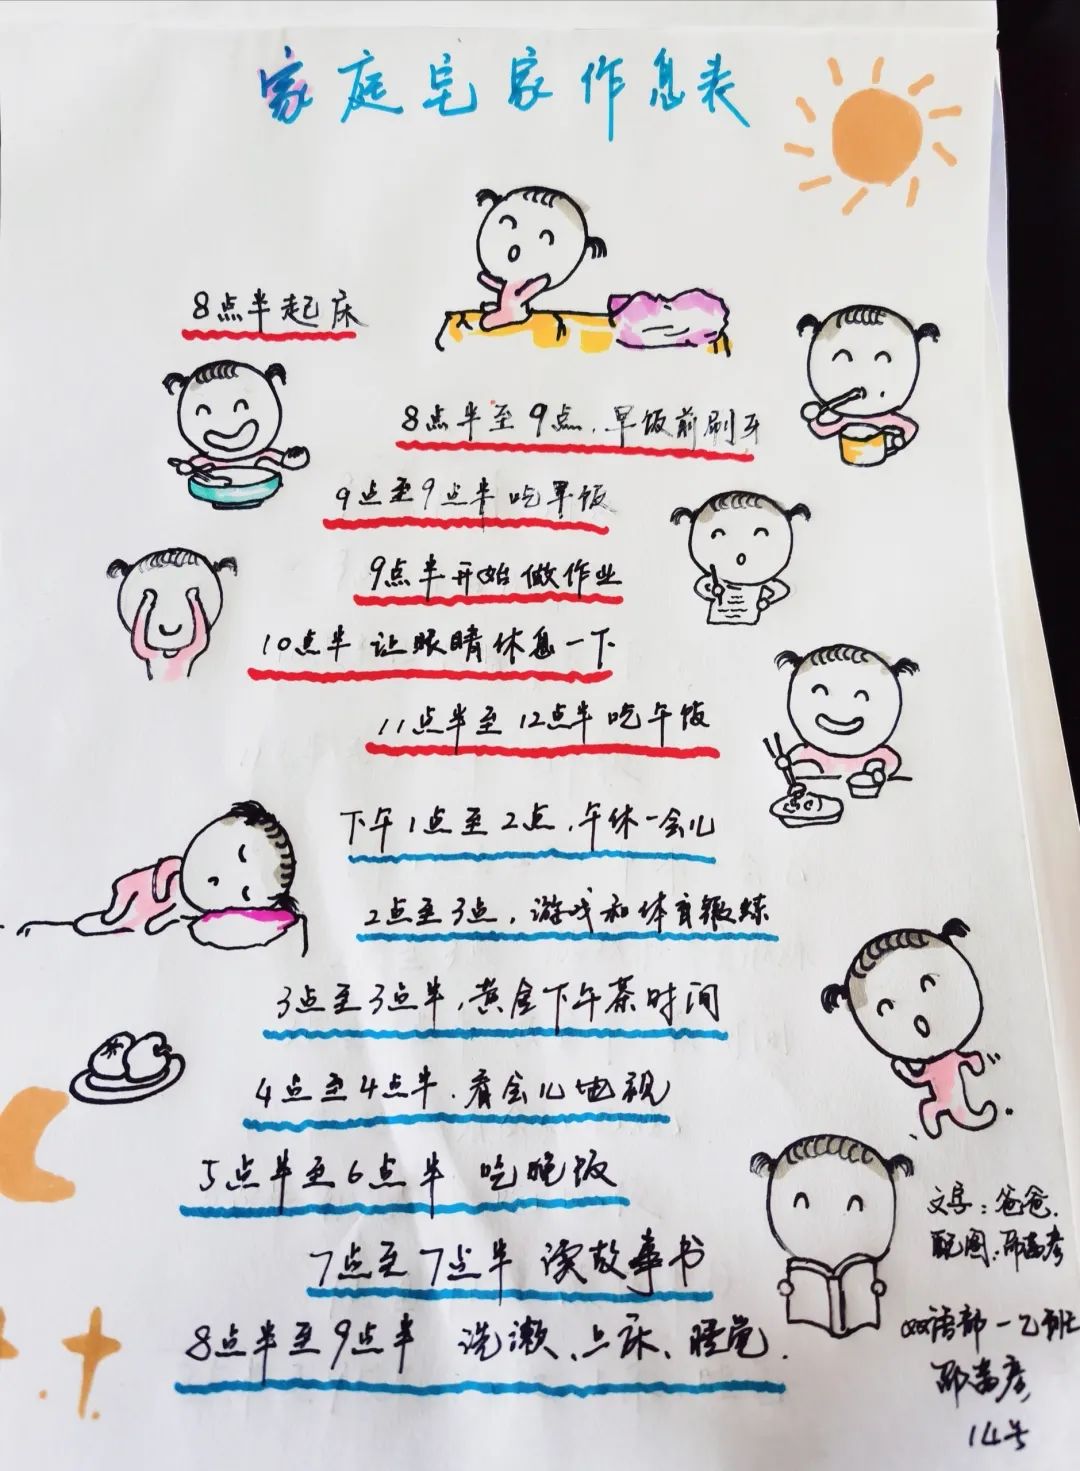 家庭宅家作息表
8点半起床
8点半至9点，早饭前刷牙
9点至9点半 吃早饭
9点半开始做作业
10点半 让眼睛休息一下
11点半至12点半 吃午饭
下午1点至2点，午休一会儿
2点至3点，游戏和体育锻炼
3点至3点半，黄金下午茶时间
4点至4点半，看会儿电视
5点半至6点半 吃晚饭
7点至7点半 读故事书
8点半至9点半 洗漱、上床、睡觉.
文字：爸爸.
配图：邵
双语部一乙班
邵
14号